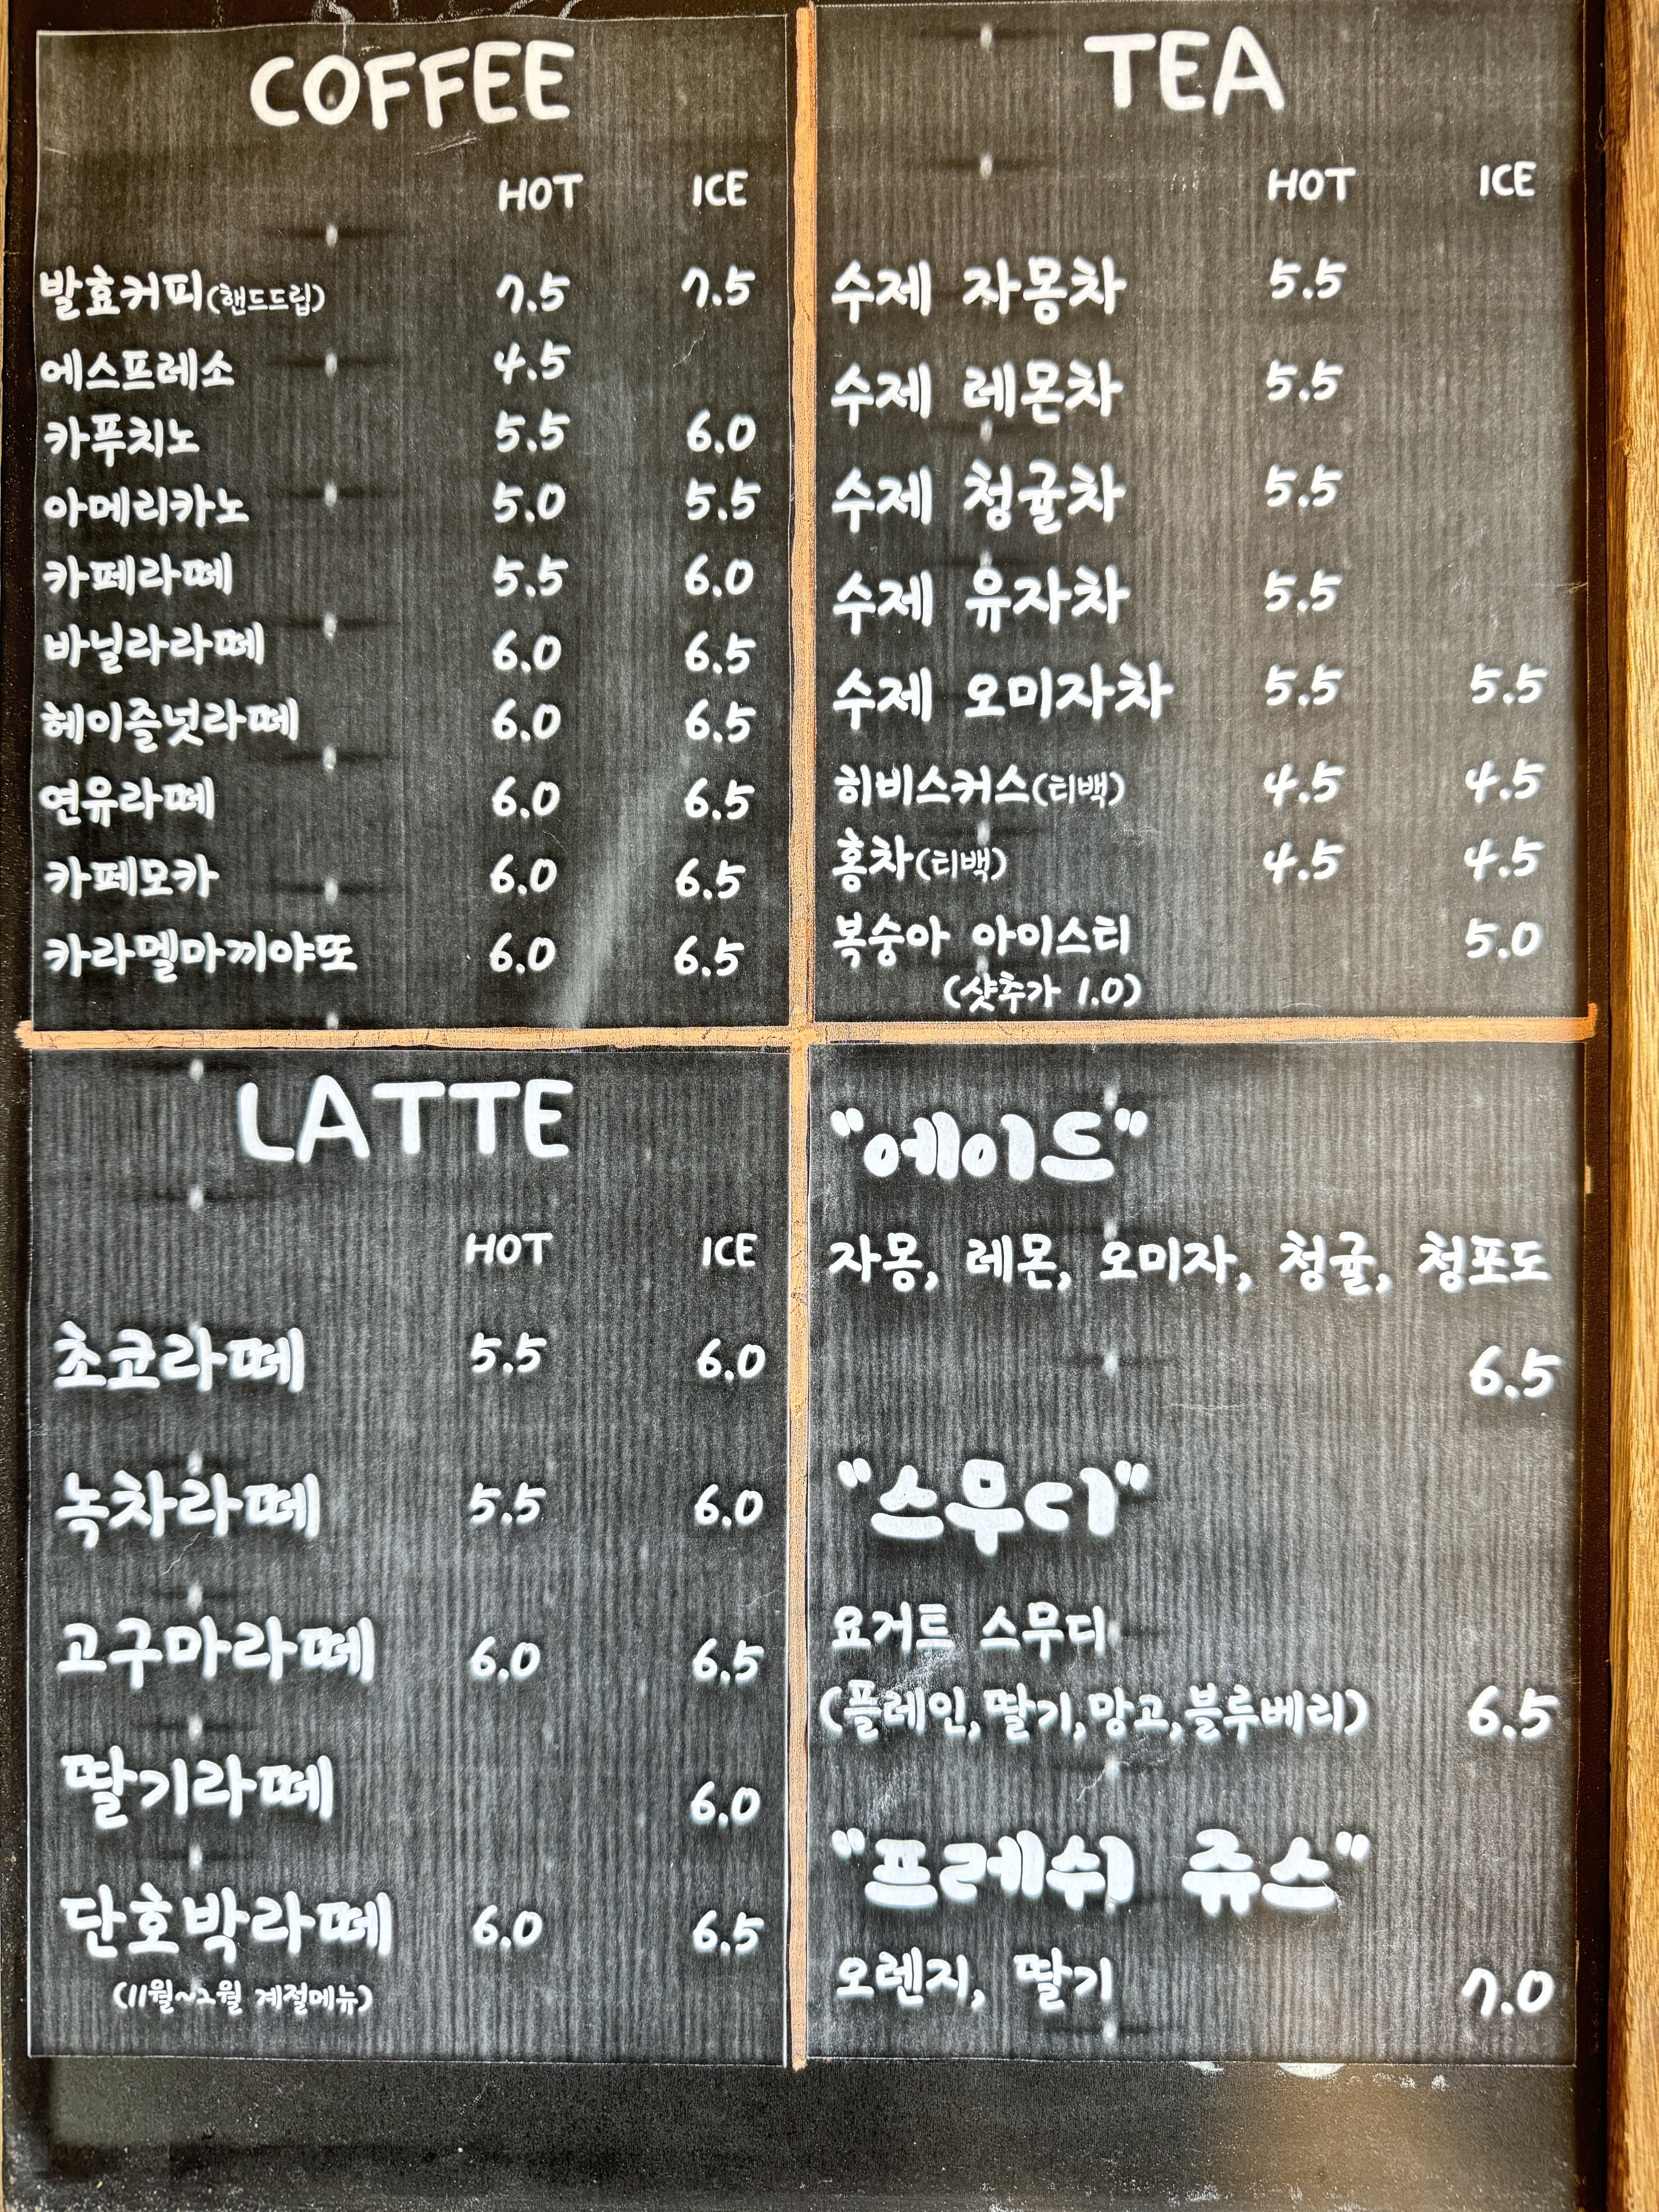 COFFEE
HOT ICE
발효커피(핸드드립) 7.5 7.5
에스프레소 4.5
카푸치노 5.5 6.0
아메리카노 5.0 5.5
카페라떼 5.5 6.0
바닐라라떼 6.0 6.5
헤이즐넛라떼 6.0 6.5
연유라떼 6.0 6.5
카페모카 6.0 6.5
카라멜마끼야또 6.0 6.5
TEA
HOT ICE
수제 자몽차 5.5
수제 레몬차 5.5
수제 청귤차 5.5
수제 유자차 5.5
수제 오미자차 5.5 5.5
히비스커스(티백) 4.5 4.5
홍차(티백) 4.5 4.5
복숭아 아이스티 5.0
(샷추가 1.0)
LATTE
HOT ICE
초코라떼 5.5 6.0
녹차라떼 5.5 6.0
고구마라떼 6.0 6.5
딸기라떼 6.0
단호박라떼 6.0 6.5
(11월~2월 계절메뉴)
"에이드"
자몽, 레몬, 오미자, 청귤, 청포도
6.5
"스무디"
요거트 스무디
(플레인,딸기,망고,블루베리) 6.5
"프레쉬 쥬스"
오렌지, 딸기 7.0